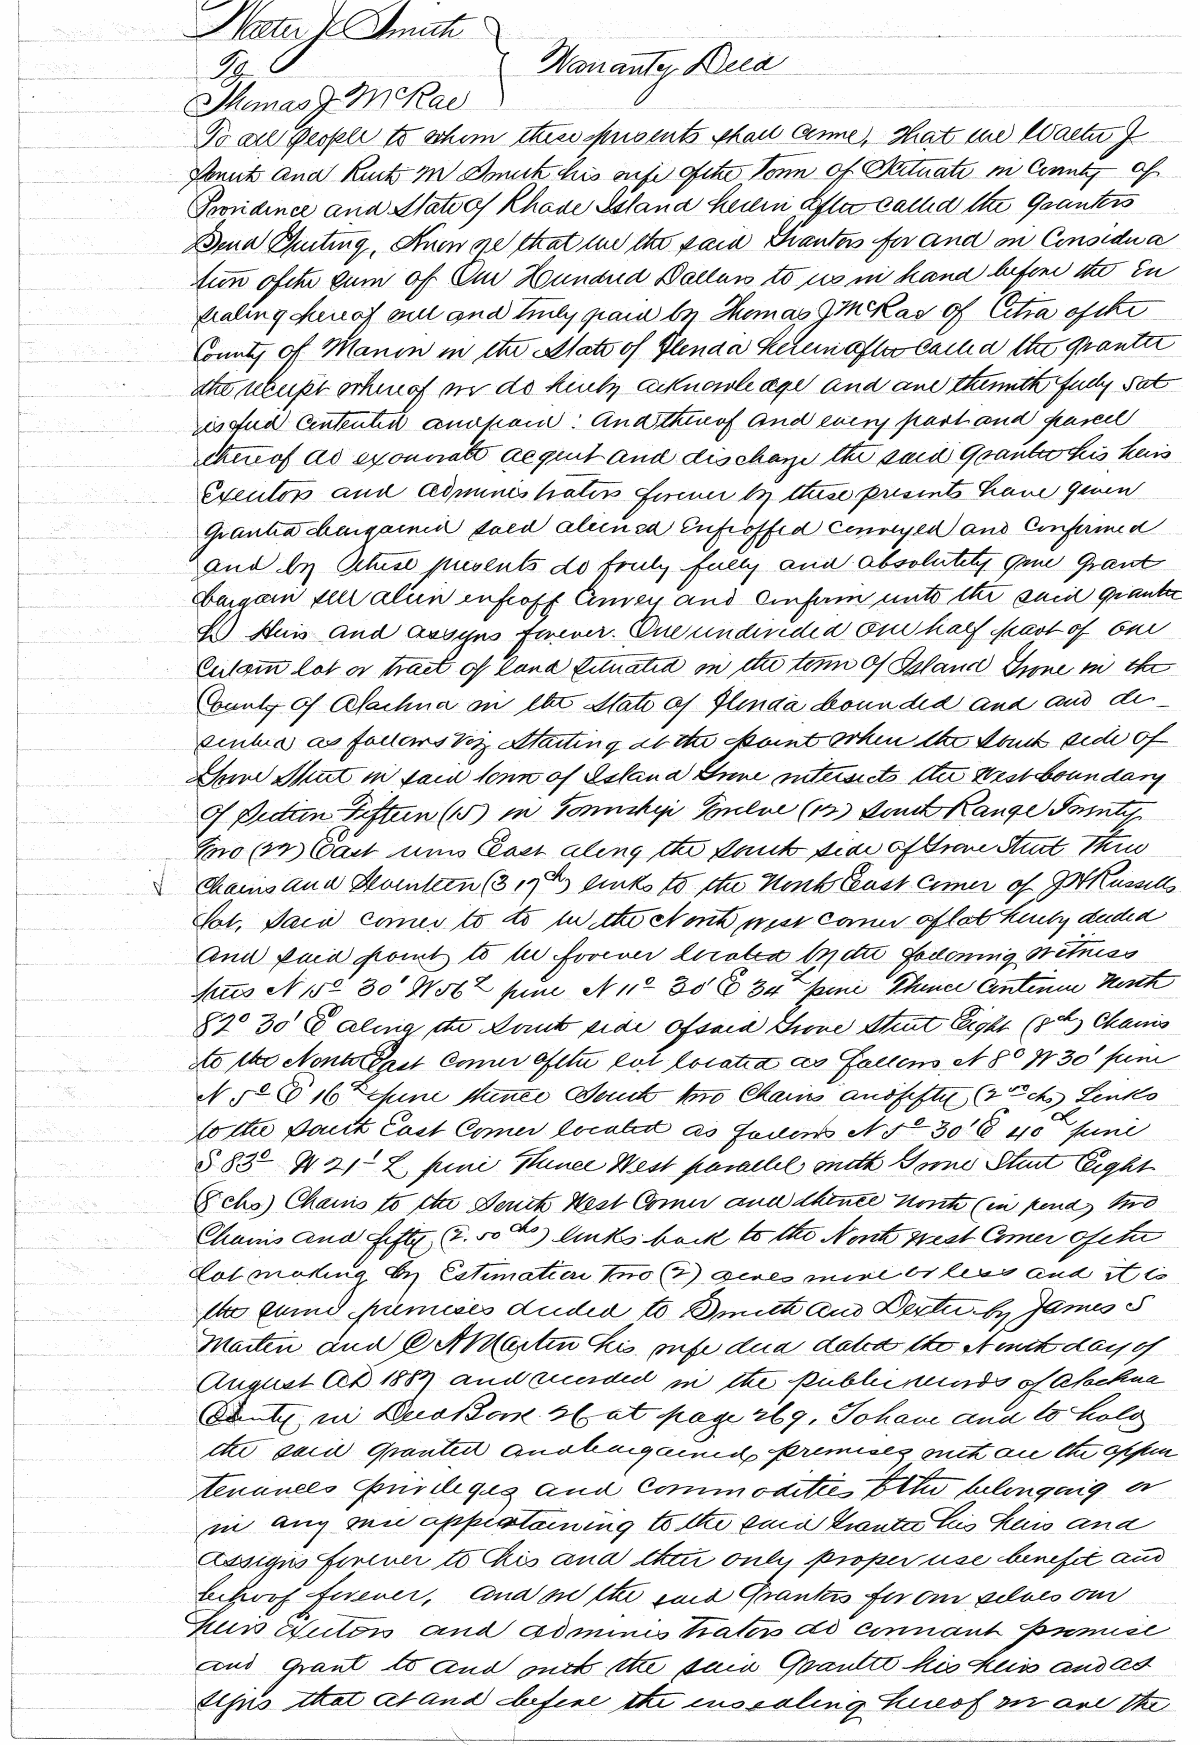 Walter J Smith
To
Warranty Deed
Thomas J McRae
To all people to whom these presents shall come, That we Walter J
Smith and Ruth M Smith his wife of the Town of Scituate in County of
Providence and State of Rhode Island herein after called the Grantors
Send Greeting, Know ye that we the said Grantors for and in Considera
tion of the sum of One Hundred Dollars to us in hand before the En
sealing hereof well and truly paid by Thomas J McRae of Citra of the
County of Marion in the State of Florida herein after called the grantee
the receipt whereof we do hereby acknowledge and are therewith fully sat
isfied contented and paid: And thereof and every part and parcel
thereof do exonerate acquit and discharge the said Grantee his heirs
Executors and administrators forever by these presents have given
granted bargained sold aliened Enfeoffed Conveyed and Confirmed
and by these presents do freely fully and absolutely give grant
bargain sell alien enfeoff Convey and Confirm unto the said grantee
his Heirs and assigns forever. One undivided one half part of one
Certain lot or tract of land situated in the town of Island Grove in the
County of Alachua in the State of Florida bounded and and de-
scribed as follows viz Starting at the point where the South side of
Grove Street in said town of Island Grove intersects the West boundary
of Section Fifteen (15) in Township Twelve (12) South Range Twenty
two (22) East runs East along the South side of Grove Street Three
Chains and Seventeen (3 17ch) links to the North East Corner of J H Russells
lot, Said corner to to be the North west corner of lot hereby deeded
and said point to be forever located by the following Witness
trees N 15° 30' W 56 L pine N 11° 30' E 34 L pine Thence Continue North
82° 30' E along the South side of said Grove Street Eight (8ch) Chains
to the North East Corner of the lot located as follows N 8° W 30' pine
N 5° E 16 L pine thence South two Chains and fifty (2.50 chs) Links
to the South East Corner located as follows N 5° 30' E 40 L pine
S 83° W 21' L pine Thence West parallel with Grove Street Eight
(8 chs) Chains to the South West Corner and thence North (in rear) two
Chains and fifty (2.50 chs) links back to the North West Corner of the
lot making by Estimation two (2) acres more or less and it is
the same premises deeded to Smith and Dexter by James S
Martin and C A Martin his wife deed dated the Ninth day of
August AD 1889 and recorded in the public records of Alachua
County in Deed Book 26 at page 269, To have and to hold
the said granted and bargained premises with all the appur
tenances privileges and commodities to the belonging or
in any wise appertaining to the said Grantee his heirs and
assigns forever to his and their only proper use benefit and
behoof forever, and we the said Grantors for our selves our
heirs Exutors and administrators do covenant promise
and grant to and with the said Grantee his heirs and as
signs that at and before the ensealing hereof we are the